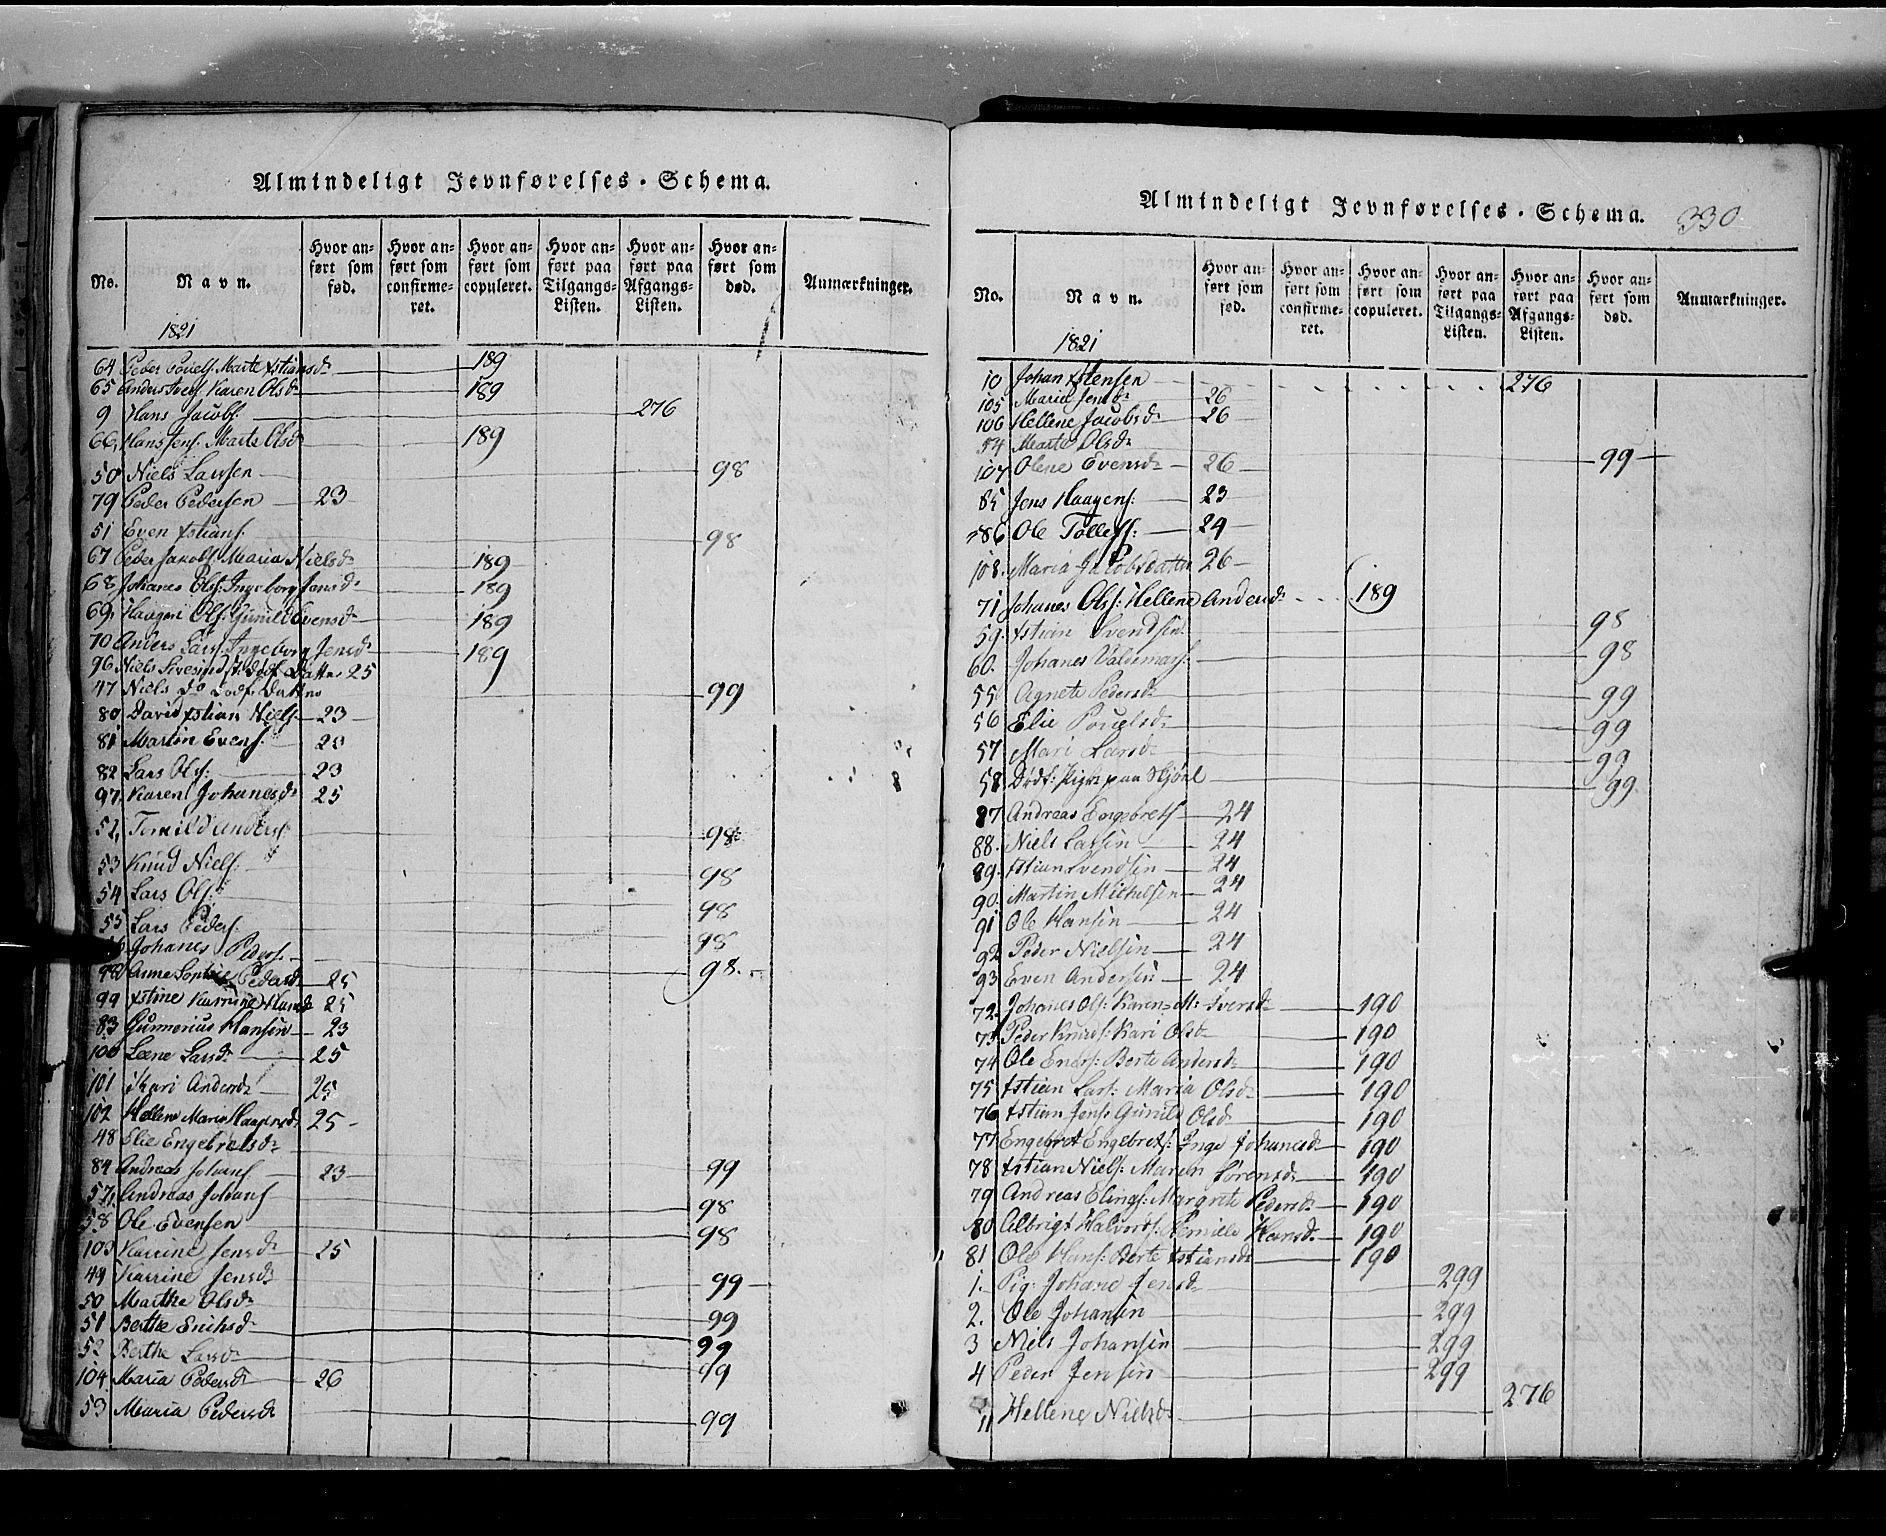 Almindeligt Jevnførelses-Schema.
No. Navn. Hvor anført som fød. Hvor anført som confirmeret. Hvor anført som copuleret. Hvor anført paa Tilgangs-Listen. Hvor anført paa Afgangs-Listen. Hvor anført som død. Anmærkninger.
1821
64 Peder Povels Marte Xstiansdr 189
65 Karen Olsdr 189
9 Hans Jacobs 276
66 Hans Jens. Marte Olsdr 189
50 Niels Larssen 98
79 Peder Pedersen 23
51 Even Xstians. 98
67 Peder Jacobs. Maria Nielsdr 189
68 Johanes Ols. Ingeborg Jensdr 189
69 Haagen Ols. Gunild Evensdr 189
70 Anders Lars. Ingeborg Jensdr 189
96 Niels Datter 25
47 Niels Do 99
80 David Xstian Niels. 23
81 Martin Evens. 23
82 Lars Ols. 23
97 Karen Johanesdr 25
52 Anders 98
53 Knud Niels. 98
54 Lars Ols. 98
55 Lars Peders. 98
56 Johanes Peders. 98
98 Anne Sophie Pedersdr 25
99 Xstine Karrine Hansdr 25
83 Gunnerius Hansen 23
100 Leene Larsdr 25
101 Kari Andersdr 25
102 Hellene Maria Haagensdr 25
48 Elie Engebretsdr 99
84 Andreas Johans 23
57 Andreas Johans 98
58 Ole Evensen 98
103 Karrine Jensdr 25
49 Karrine Jensdr 99
50 Marthe Olsdr 99
51 Berthe Erichsdr 99
52 Berthe Larsdr 99
104 Maria Pedersdr 26
53 Maria Pedersdr 99
Almindeligt Jevnførelses-Schema. 330
No. Navn. Hvor anført som fød. Hvor anført som confirmeret. Hvor anført som copuleret. Hvor anført paa Tilgangs-Listen. Hvor anført paa Afgangs-Listen. Hvor anført som død. Anmærkninger.
1821
10 Johan Xstensen 276
105 Maria Jensdr 26
106 Hellene Jacobsdr 26
54 Marte Olsdr 99
107 Olene Evensdr 26
85 Jens Haagens. 23
86 Ole Tollefs. 24
108 Maria Jacobsdatter 26
71 Johanes Ols: Hellene Andersdr 189
59. Xstian Svendsen 98
60. Johanes Valdemars. 98
55 Agnete Pedersdr 99
56 Elie Povelsdr 99
57 Mari Larsdr 99
58 Dødf: Pige paa 99
87 Andreas Engebrets 24
88. Niels Larsen 24
89. Xstian Svendsen 24
90. Martin Michelsen 24
91 Ole Hansen 24
92 Peder Nielsen 24
93 Even Andersen 24
72. Johanes Ols: Karen M: Iversdr 190
73 Peder Knuds: Kari Olsdr 190
74 Ole Eners: Berte Andersdr 190
75 Xstian Lars: Maria Olsdr 190
76 Xstian Jens: Gunild Olsdr 190
77 Engebret Engebrets: Inge Johanesdr 190
78 Xstian Niels: Maren Sørensdr 190
79 Andreas Elings: Margrete Pedersdr 190
80 Albrigt Halvors: Hansdr 190
81 Ole Hans: Berte Xstiansdr 190
1. Pig: Johane Jensdr 299
2. Ole Johansen 299
3 Niels Johansen 299
4 Peder Jensen 299
11 Hellene Nielsdr 276